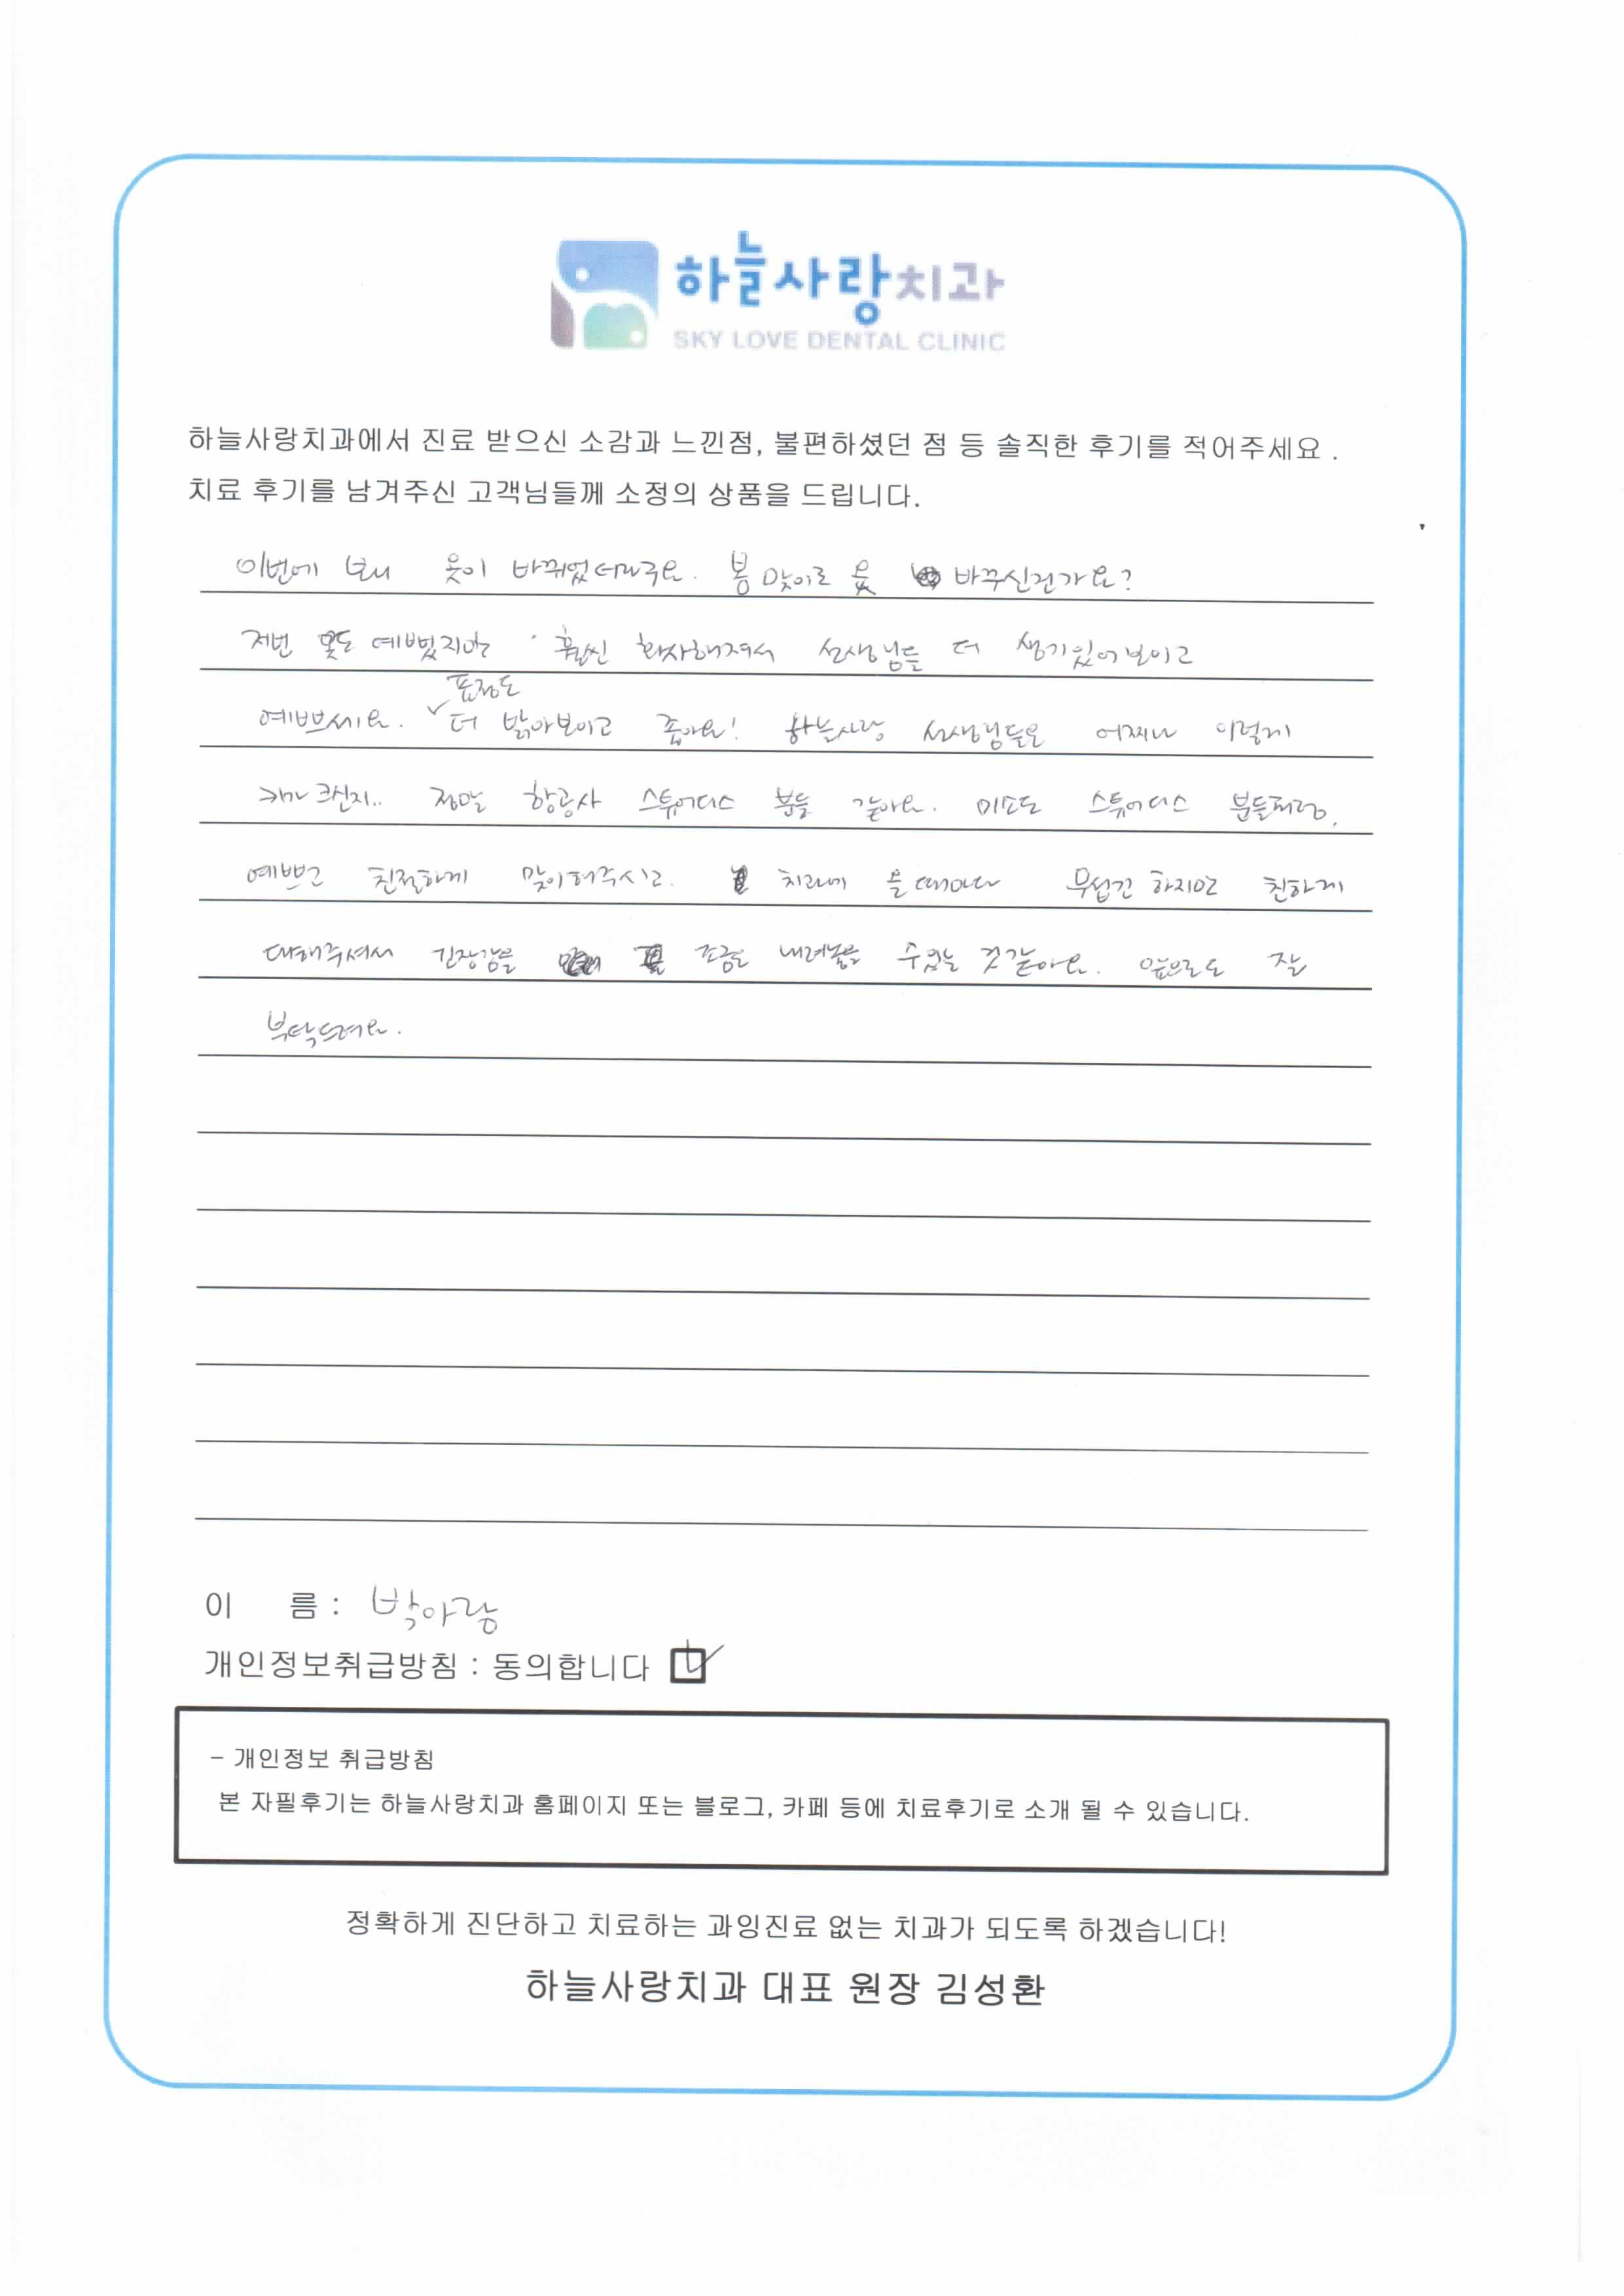 하늘사랑치과
SKY LOVE DENTAL CLINIC
하늘사랑치과에서 진료 받으신 소감과 느낀점, 불편하셨던 점 등 솔직한 후기를 적어주세요 .
치료 후기를 남겨주신 고객님들께 소정의 상품을 드립니다.
이번에 보니 옷이 바뀌었더라구요. 봄 맞이로 옷 바꾸신건가요?
저번 옷도 예뻤지만 훨씬 화사해져서 선생님들 더 생기있어보이고
표정도
예쁘세요. 더 밝아보이고 좋아요! 하늘사랑 선생님들은 어찌나 이렇게
키가 크신지.. 정말 항공사 스튜어디스 분들 같아요. 미소도 스튜어디스 분들처럼,
예쁘고 친절하게 맞이해주시고. 치과에 올 때마다 무섭긴 하지만 친하게
대해주셔서 긴장감을 조금은 내려놓을 수있는 것같아요. 앞으로도 잘
부탁드려요.
이 름 : 박아람
개인정보취급방침 : 동의합니다
- 개인정보 취급방침
본 자필후기는 하늘사랑치과 홈페이지 또는 블로그, 카페 등에 치료후기로 소개 될 수 있습니다.
정확하게 진단하고 치료하는 과잉진료 없는 치과가 되도록 하겠습니다!
하늘사랑치과 대표 원장 김성환